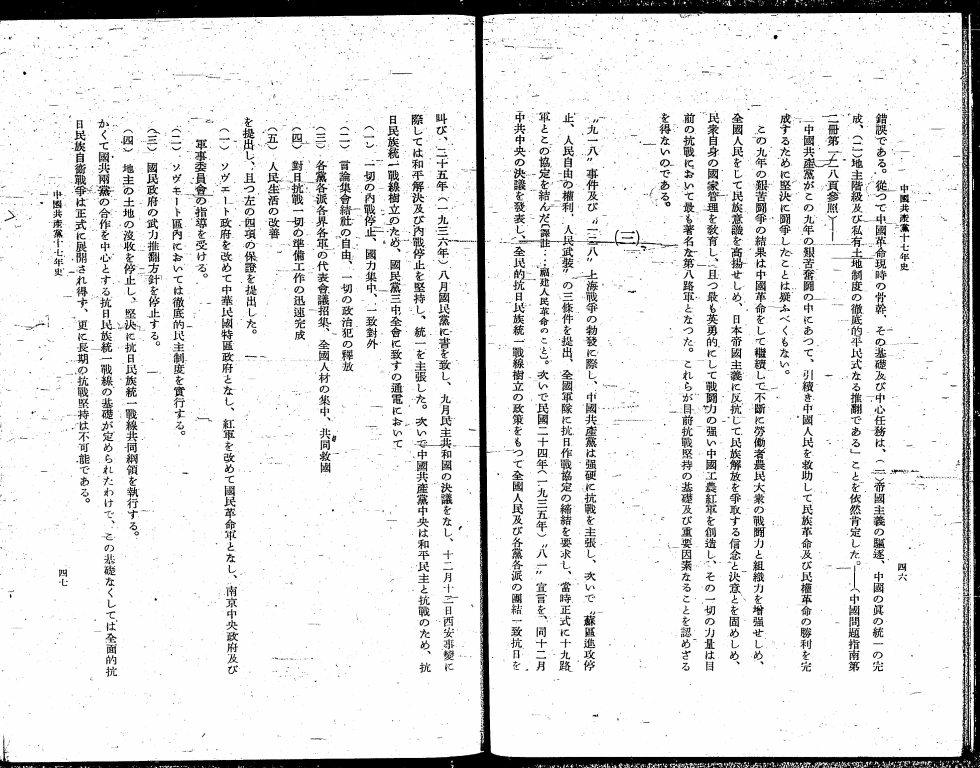 中國共產黨十七年史
四六
錯誤である。從つて中國革命現時の骨幹、その基礎及び中心任務は、(一)帝國主義の驅逐、中國の眞の統一の完
成、(二)地主階級及び私有土地制度の徹底的平民式なる推翻である」ことを依然肯定した。――(中國問題指南第
二冊第一二八頁參照)――
中國共產黨がこの九年の艱苦奮鬪の中にあつて、引續き中國人民を救助して民族革命及び民權革命の勝利を完
成するために堅決に鬪爭したことは疑ふべくもない。
この九年の艱苦鬪爭の結果は中國革命をして繼續して不斷に勞働者農民大衆の戰鬪力と組織力を增强せしめ、
全國人民をして民族意識を高揚せしめ、日本帝國主義に反抗して民族解放を爭取する信念と決意とを固めしめ、
民衆自身の國家管理を敎育し、且つ最も英勇的にして戰鬪力の强い中國工農紅軍を創造し、その一切の力量は目
前の抗戰において最も著名な第八路軍となつた。これらが目前抗戰堅持の基礎及び重要因素なることを認めざる
を得ないのである。
(三)
〝九一八〟事件及び〝一二八〟上海戰爭の勃發に際し、中國共產黨は强硬に抗戰を主張し、次いで〝蘇區進攻停
止、人民自由の權利、人民武裝〟の三條件を提出、全國軍隊に抗日作戰協定の締結を要求し、當時正式に十九路
軍とこの協定を結んだ(譯註…福建人民革命のこと)。次いで民國二十四年(一九三五年)〝八一〟宣言を、同十二月
中共中央の決議を發表し、全民的抗日民族統一戰線樹立の政策をもつて全國人民及び各黨各派の團結一致抗日を
叫び、二十五年(一九三六年)八月國民黨に書を致し、九月民主共和國の決議をなし、十二月十二日西安事變に
際しては和平解決及び內戰停止を堅持し、統一を主張した。次いで中國共產黨中央は和平民主と抗戰のため、抗
日民族統一戰線樹立のため、國民黨三中全會に致すの通電において
(一) 一切の內戰停止、國力集中、一致對外
(二) 言論集會結社の自由、一切の政治犯の釋放
(三) 各黨各派各界各軍の代表會議招集、全國人材の集中、共同救國
(四) 對日抗戰一切の準備工作の迅速完成
(五) 人民生活の改善
を提出し、且つ左の四項の保證を提出した。
(一) ソヴェート政府を改めて中華民國特區政府となし、紅軍を改めて國民革命軍となし、南京中央政府及び
軍事委員會の指導を受ける。
(二) ソヴェート區內においては徹底的民主制度を實行する。
(三) 國民政府の武力推翻方針を停止する。
(四) 地主の土地の沒收を停止し、堅決に抗日民族統一戰線共同綱領を執行する。
かくて國共兩黨の合作を中心とする抗日民族統一戰線の基礎が定められたわけで、この基礎なくしては全面的抗
日民族自衞戰爭は正式に展開され得ず、更に長期の抗戰堅持は不可能である。
中國共產黨十七年史
四七